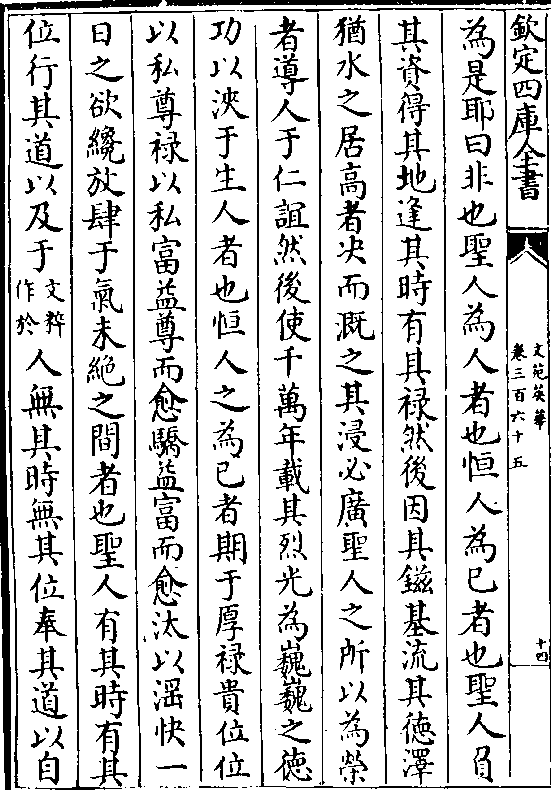 欽定四庫全書
文苑英華
卷三百六十五
十四
為是耶曰非也聖人為人者也恒人為已者也聖人負
其資得其地逢其時有其禄然後因其鎡基流其徳澤
猶水之居高者决而溉之其浸必廣聖人之所以為榮
者導人于仁誼然後使千萬年載其烈光為巍巍之徳
功以浹于生人者也恒人之為已者期于厚禄貴位位
以私尊禄以私富益尊而愈驕益富而愈汰以滛快一
日之欲纔放肆于氣未絶之間者也聖人有其時有其
位行其道以及于文粹作於人無其時無其位奉其道以自